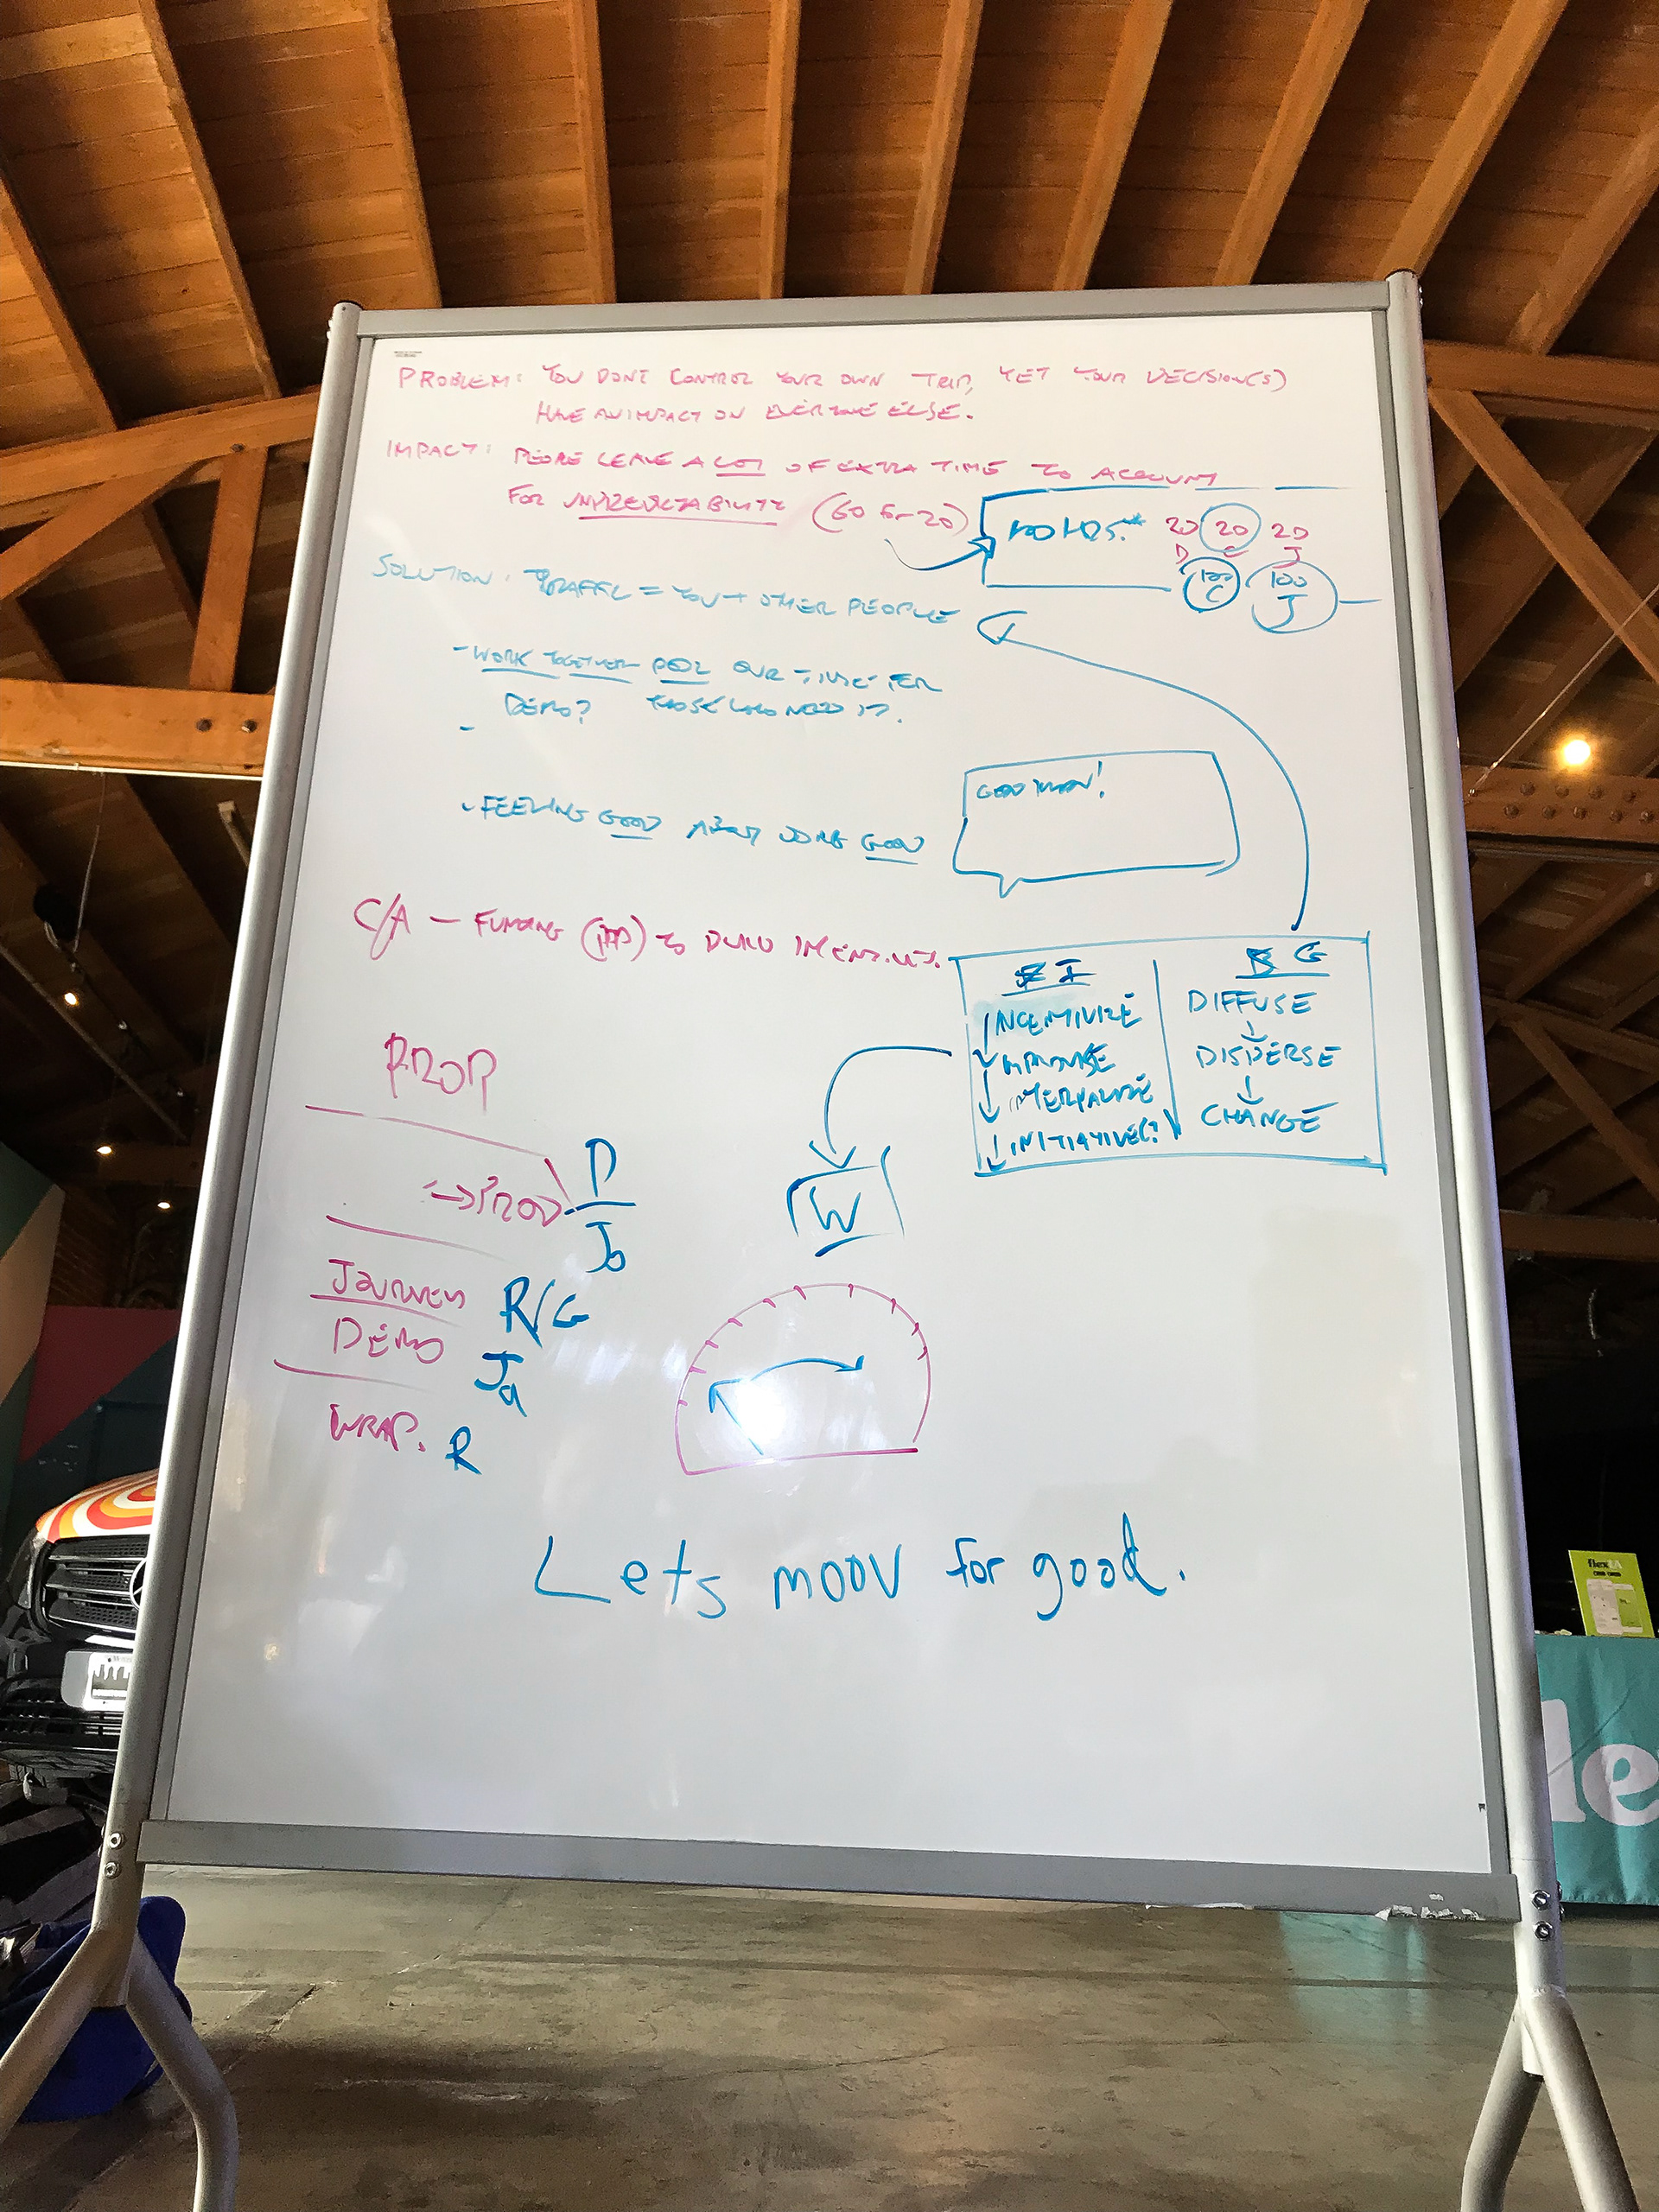 PROBLEM: YOU DONT CONTROL YOUR OWN TRIP, YET YOUR DECISION(S)
HAVE AN IMPACT ON EVERYONE ELSE.
IMPACT: PEOPLE LEAVE A LOT OF EXTRA TIME TO ACCOUNT
FOR UNPREDICTABILITY (60 for 20)
100 HRS.* 20 20 20
D C J
100 C 100 J
SOLUTION: TRAFFIC = YOU + OTHER PEOPLE
- WORK TOGETHER POOL OUR TIME FOR
DEMO? THOSE WHO NEED IT.
-
- FEELING GOOD ABOUT DOING GOOD
GOOD MORN!
C/A — FUNDING TO BUILD INCENTIVES.
I
INCENTIVIZE
INITIATIVE(?)
G
DIFFUSE
DISPERSE
CHANGE
W
PROP
→ PROD
D
Jo
JOURNEY R/G
DEMO Ja
WRAP. R
Lets moov for good.
flexLA
le